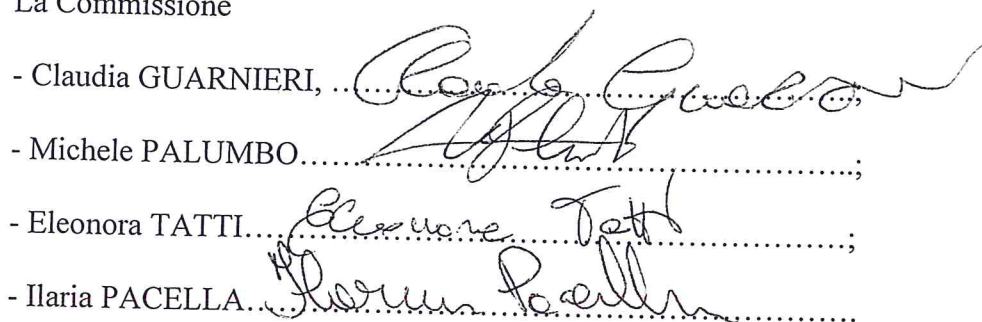 La Commissione
- Claudia GUARNIERI, ....Claudia Guarnieri....;
- Michele PALUMBO....;
- Eleonora TATTI....Eleonora Tatti....;
- Ilaria PACELLA....Ilaria Pacella....